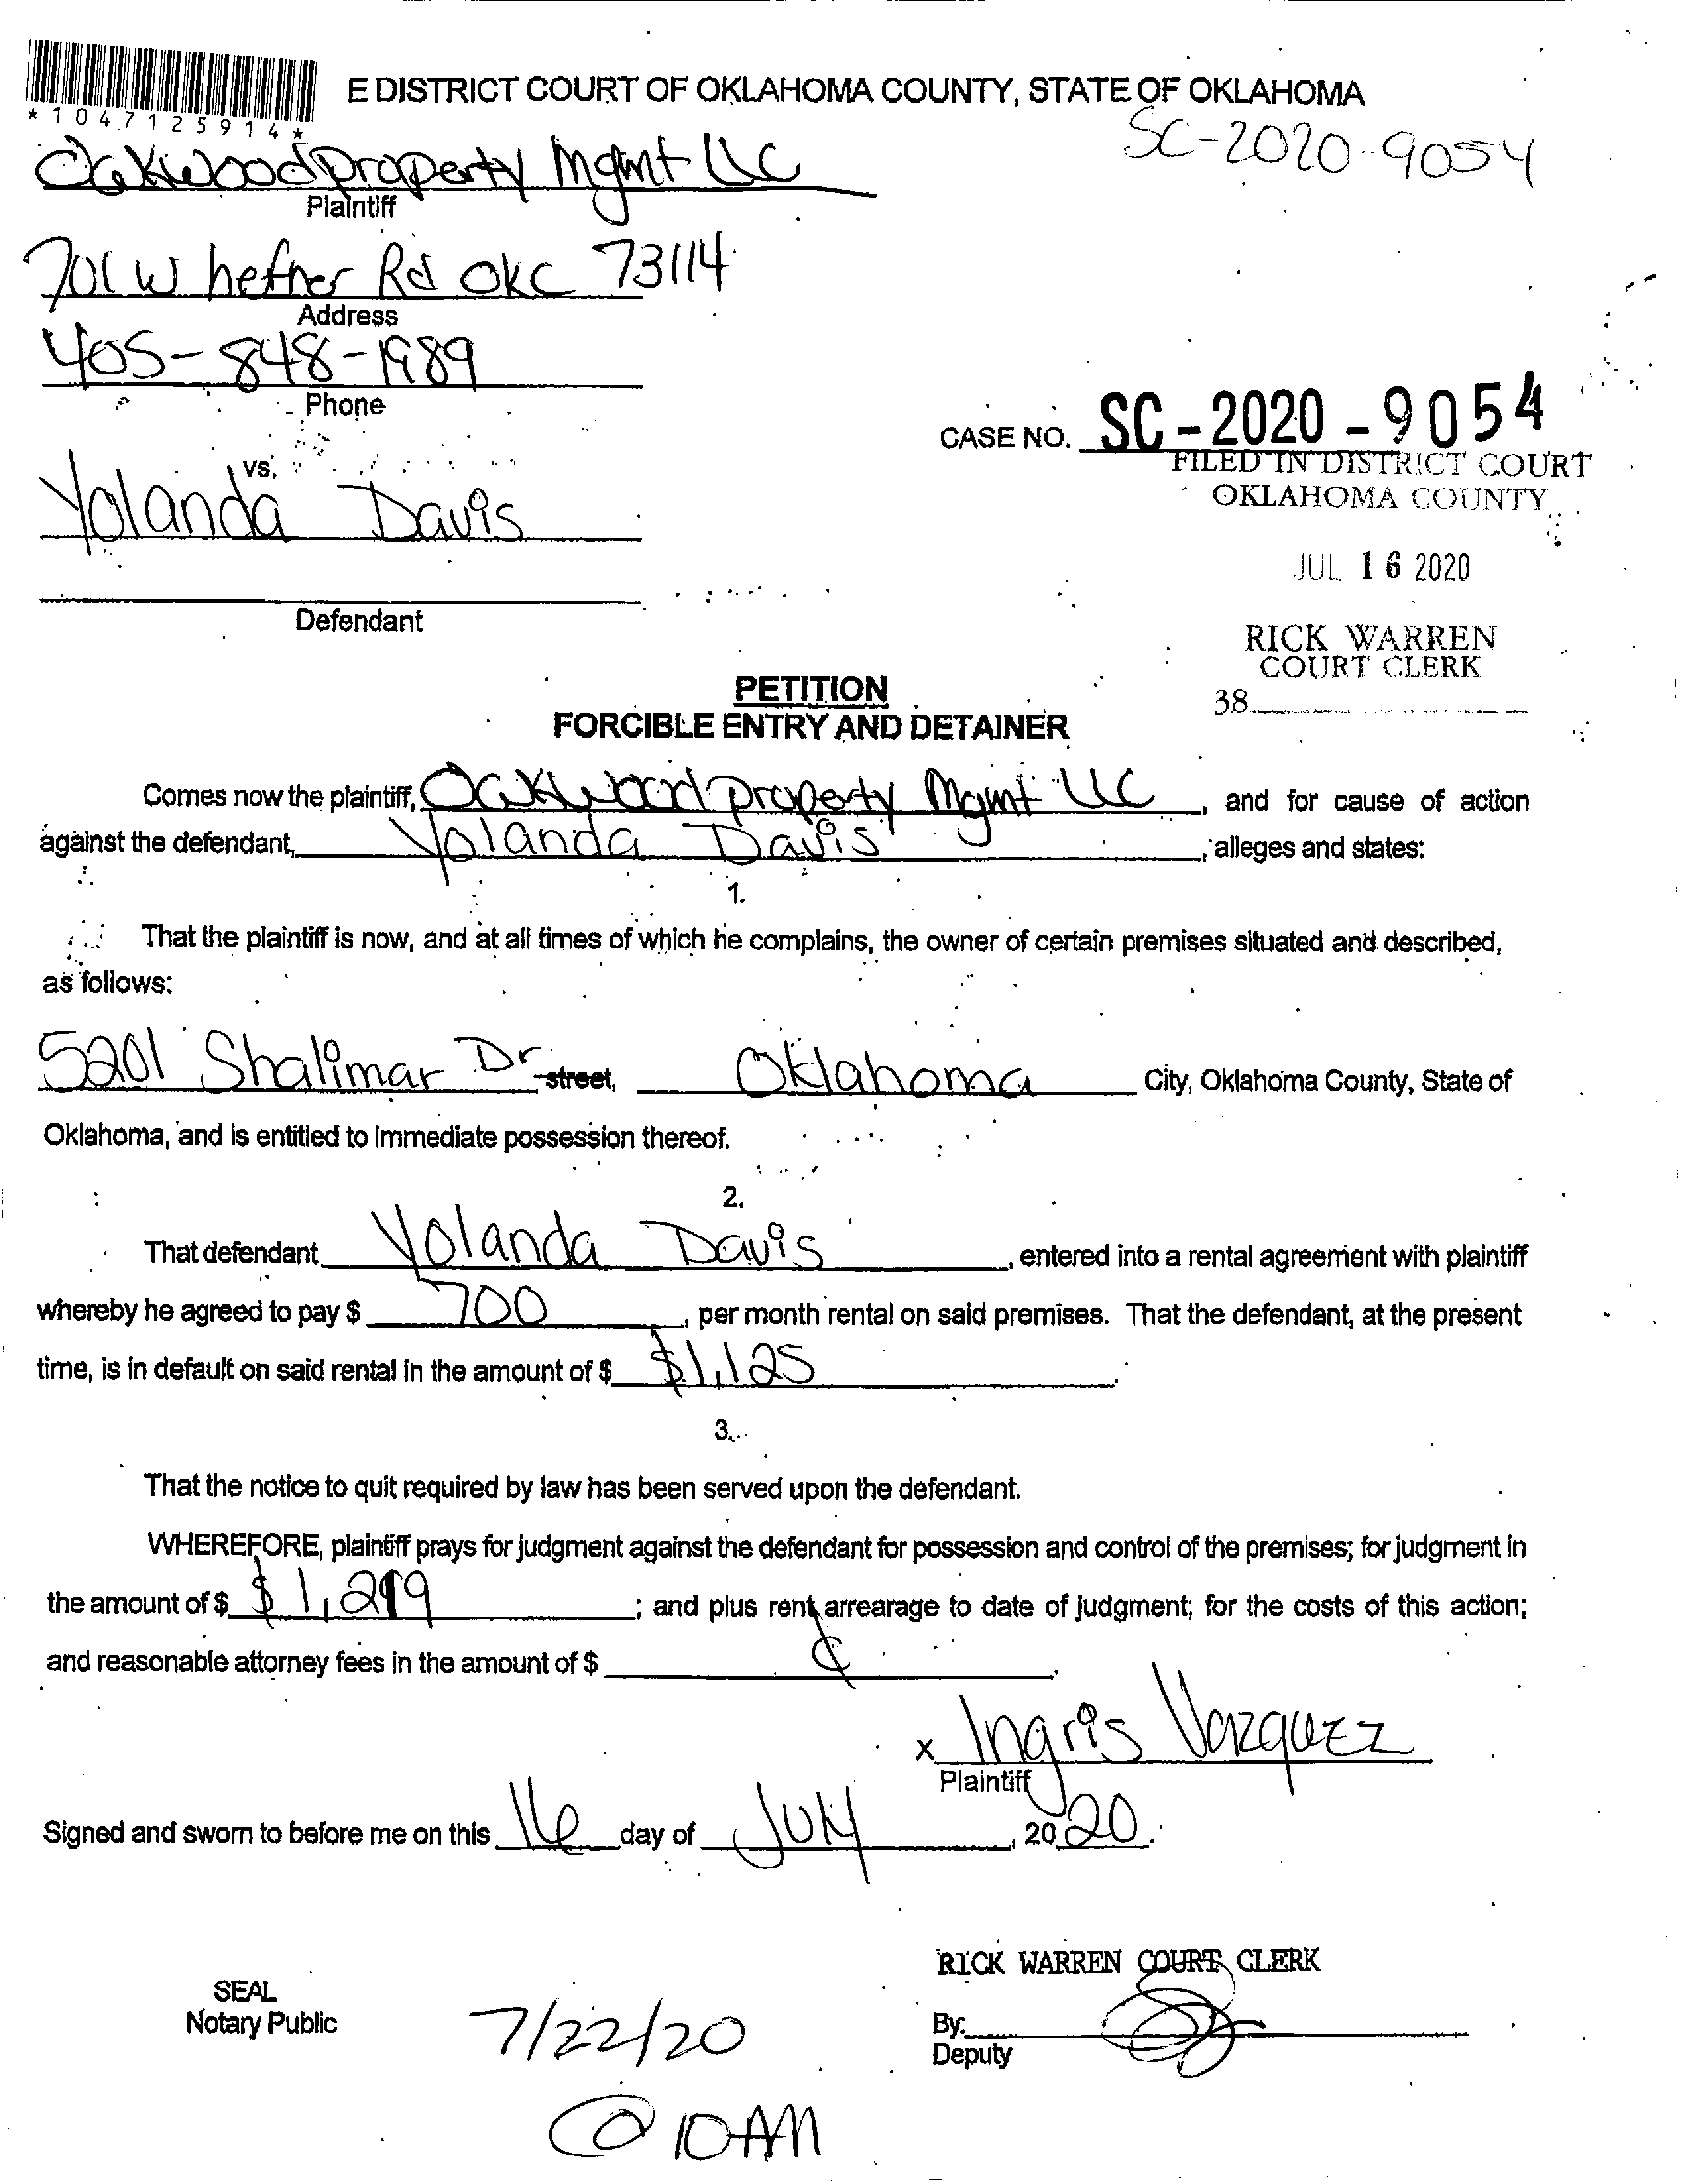 E DISTRICT COURT OF OKLAHOMA COUNTY, STATE OF OKLAHOMA
*1047125914*
SC-2020-9054
Oakwood property Mgmt LLC
Plaintiff
701 W hefner Rd OKC 73114
Address
405-848-1989
Phone
CASE NO. SC-2020-9054
FILED IN DISTRICT COURT
OKLAHOMA COUNTY
vs.
Yolanda Davis
JUL 16 2020
Defendant
RICK WARREN
COURT CLERK
38
PETITION
FORCIBLE ENTRY AND DETAINER
Comes now the plaintiff, Oakwood property Mgmt LLC, and for cause of action
against the defendant, Yolanda Davis, alleges and states:
1.
That the plaintiff is now, and at all times of which he complains, the owner of certain premises situated and described,
as follows:
5201 Shalimar Dr street, Oklahoma City, Oklahoma County, State of
Oklahoma, and is entitled to immediate possession thereof.
2.
That defendant Yolanda Davis, entered into a rental agreement with plaintiff
whereby he agreed to pay $ 700, per month rental on said premises. That the defendant, at the present
time, is in default on said rental in the amount of $ $1,125.
3.
That the notice to quit required by law has been served upon the defendant.
WHEREFORE, plaintiff prays for judgment against the defendant for possession and control of the premises; for judgment in
the amount of $ $1,299; and plus rent arrearage to date of judgment; for the costs of this action;
and reasonable attorney fees in the amount of $
x Ingris Vazquez
Plaintiff
Signed and sworn to before me on this 16 day of July, 2020.
RICK WARREN COURT CLERK
SEAL
Notary Public
7/22/20
By:
Deputy
@ 10AM